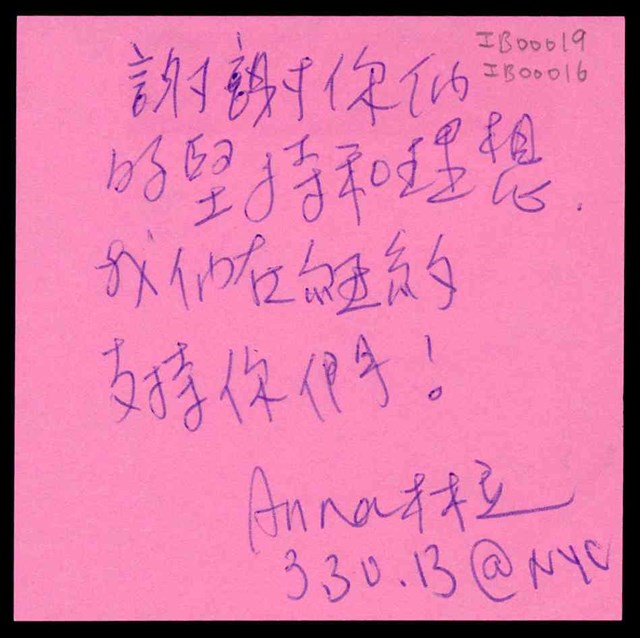 IB00019
IB00016
謝謝你们
的堅持和理想.
我们在紐約
支持你們!
Anna 林
3.30.13 @ NYC